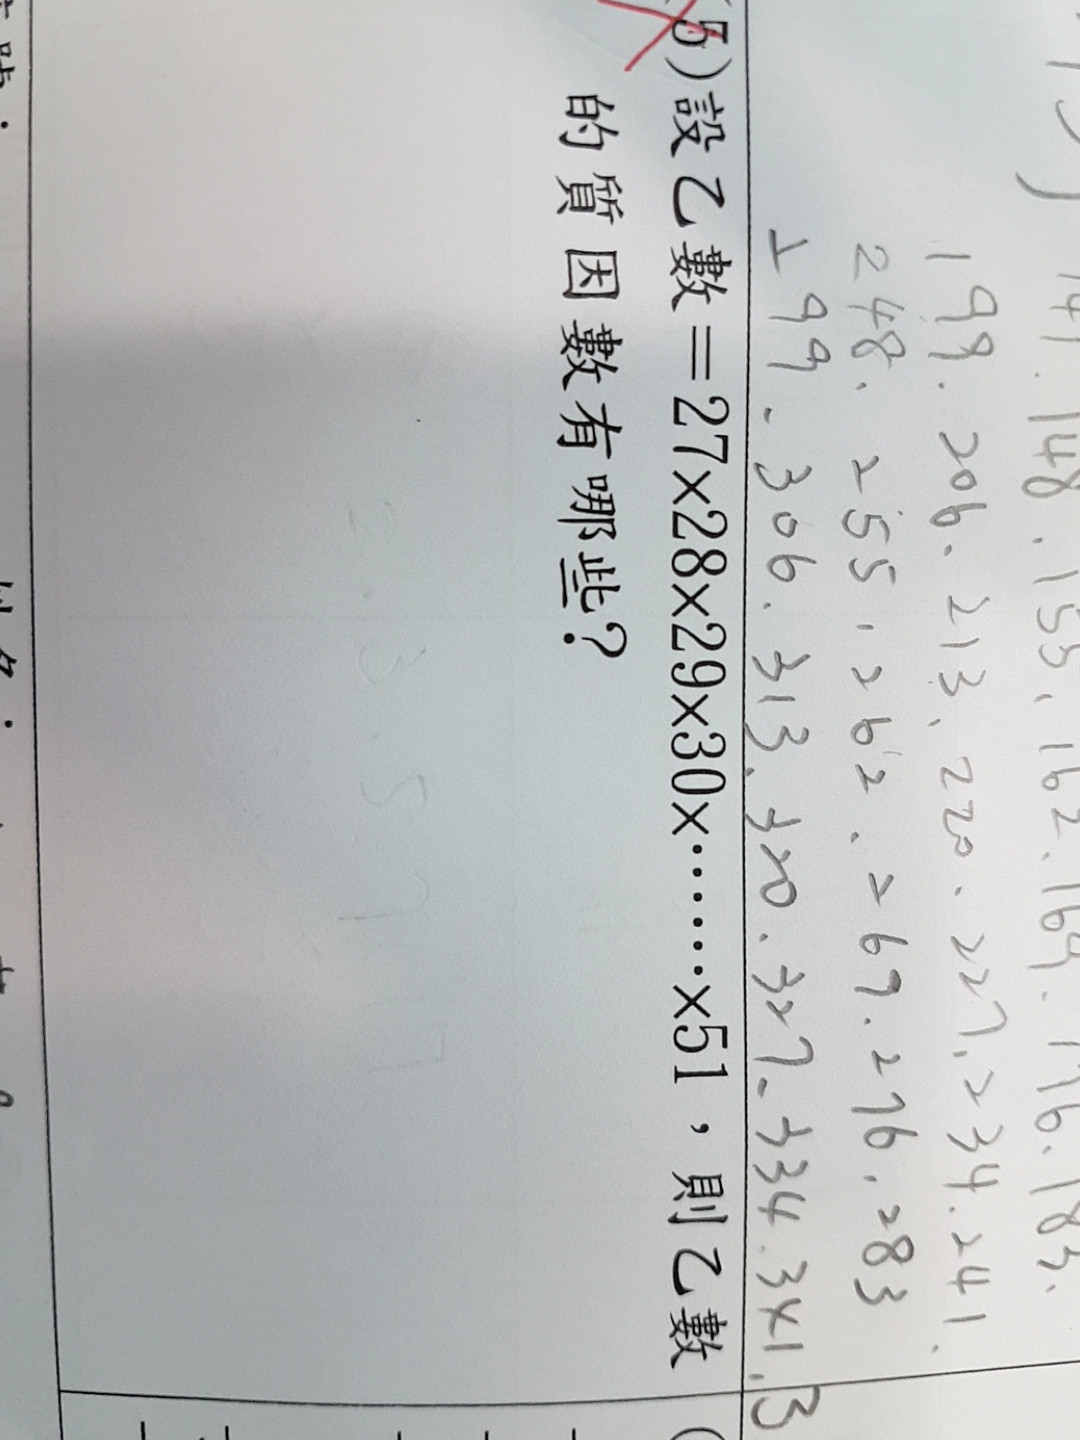 141.148.155.162.169.176.183.
199.206.213.220.227.234.241.
248.255.262.269.276.283
299.306.313.320.327.334.341.
(5)設乙數=27×28×29×30×⋯⋯×51,則乙數
的質因數有哪些?
2.3.5.7